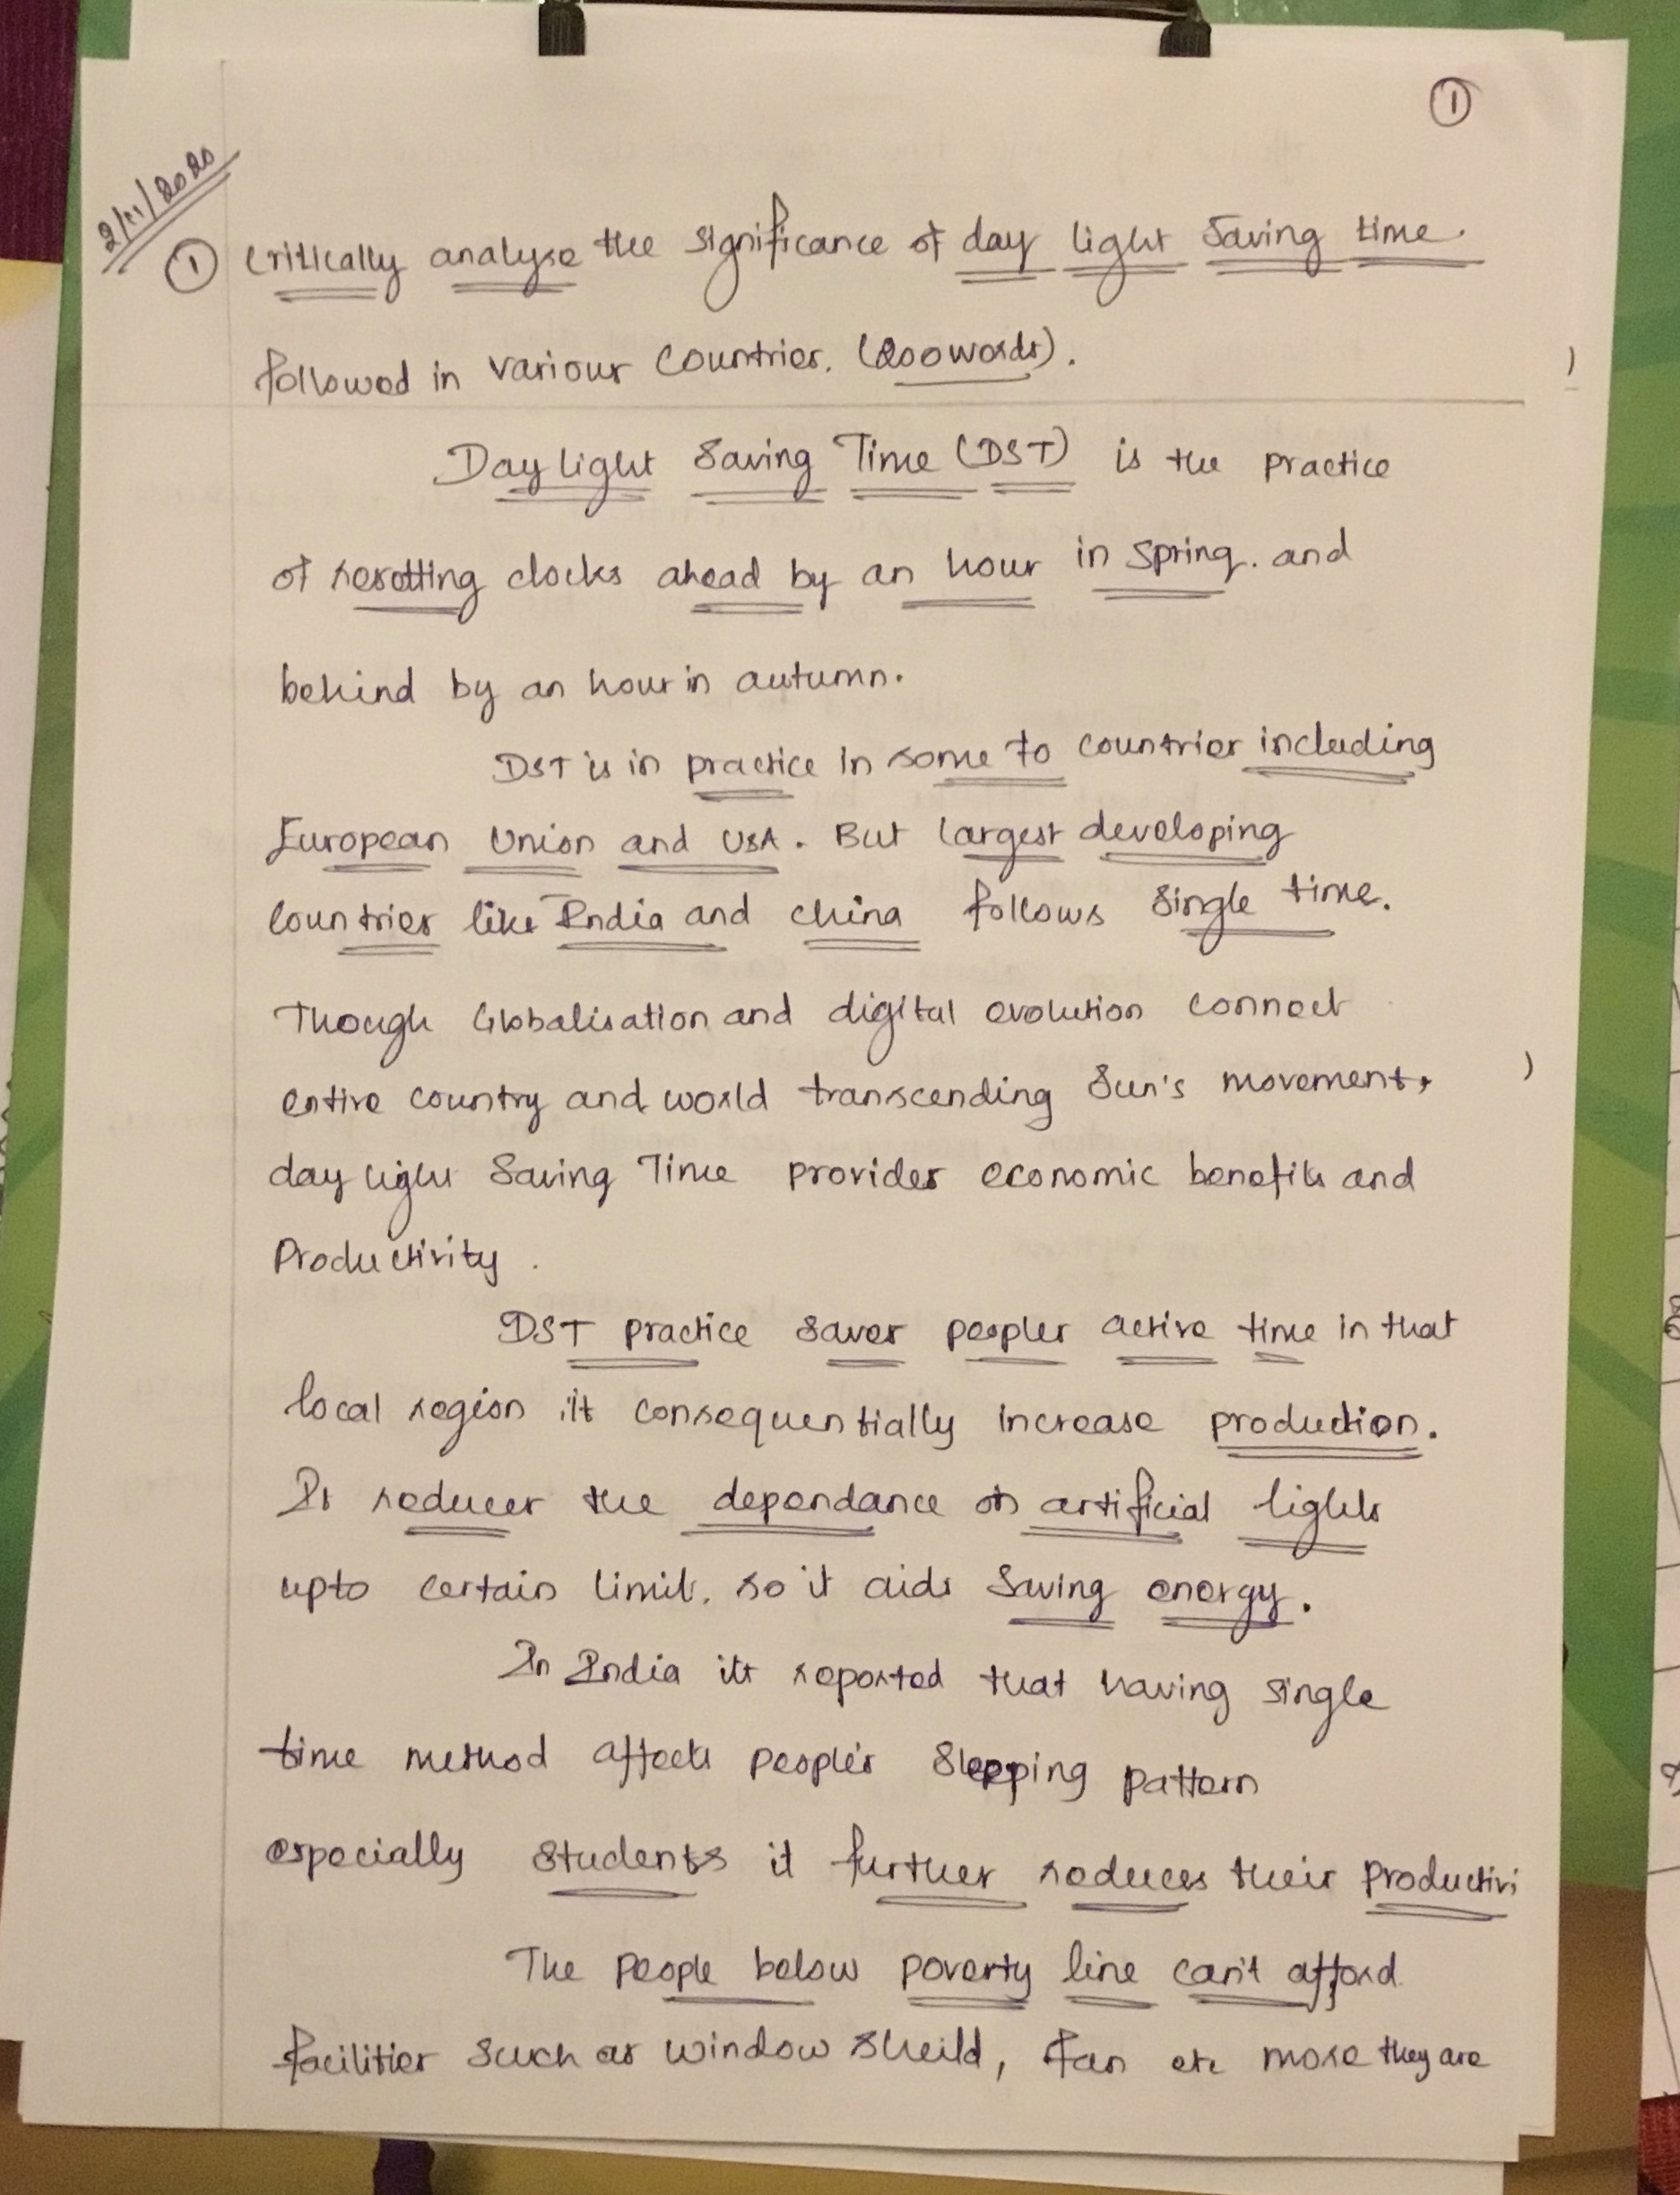 ①
2/11/2020
① Critically analyse the significance of day light Saving time
followed in various Countries. (200words).
Day light Saving Time (DST) is the practice
of resetting clocks ahead by an hour in Spring. and
behind by an hour in autumn.
DST is in practice in some 70 countries including
European Union and USA. But largest developing
Countries like India and china follows Single time.
Though Globalisation and digital evolution connect
entire country and world transcending Sun's movement,
day light Saving Time provides economic benefits and
Productivity.
DST practice saves peoples active time in that
local region it consequentially increase production.
It reduces the dependance on artificial lights
upto certain limit. so it aids Saving energy.
In India its reported that having single
time method affects people's Sleeping pattern
especially Students it further reduces their Productivi
The people below poverty line can't afford
facilities Such as window Sheild, fan etc more they are